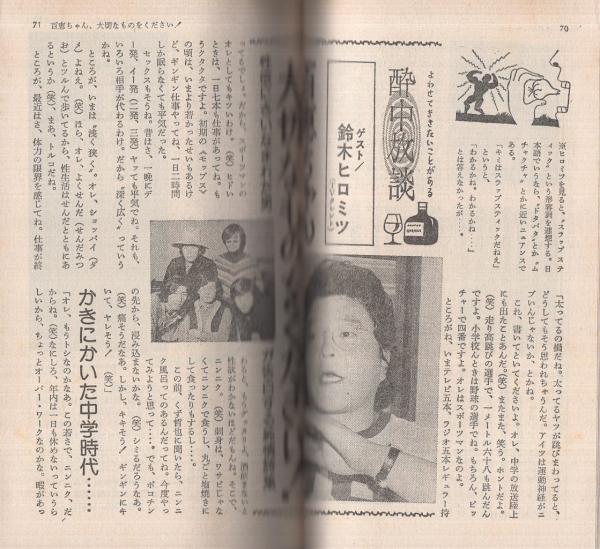 70
よわせてききたいことがある
酔中放談
ゲスト/
鈴木ヒロミツ
(TVタレント)
※ヒロミツを見ると、“スラップステ
ィック”という形容詞を連想する。日
本語でいうなら、“ドタバタ”とか“ム
チャクチャ”とかに近いニュアンスで
ある。
「キミはスラップスティックだねえ」
というと、
「わかるかね。わかるかね……」
とは答えなかったが……。
「太ってるの損だね。太ってるヤツが跳びまわってると、
どうしてもそう思われちゃうんだ。アイツは運動神経がニ
ブいんじゃないか、とかね。
これ、書いてといてくださいよ。オレ、中学の放送陸上
にも出たことあんだ。(笑)またまた、笑う。ホントだよ。
(笑)走り高跳びの選手で、一メートル六十八も跳んだん
ですよ。小学校んときは野球の選手でね。もちろん、ピッ
チャーで四番ですよ。オレはスポーツマンなのよ。
ところがね、いまテレビ五本、ラジオ五本レギュラー持
71 百恵ちゃん、大切なものをください!
ってるでしょ。だから、スポーツマンの
オレとしてもキツいわけ。(笑)ヒドい
ときは、一日七本も仕事があってね。も
うクタクタですよ。初期の《モップス》
の頃は、いまより若かったせいもあるけ
ど、ギンギン仕事やってね、一日二時間
しか眠らなくても平気だった。
セックスもそうね。昔はさ、一晩にデ
ー発、イー発(二発、三発)ヤッても平気でね。それも、
いろいろ相手が代わるわけ。だから“深く広く”っていう
かね。
ところが、いまは“浅く狭く”。オレ、ショッパイ(ダ
メ)よねえ。(笑)ほら、オレ、よくせんだ(せんだみつ
お)とツルんで歩いてるから、性生活はせんだとともにあ
るというか(笑)、まあ、トルコだね。
ところが、最近はさ、体力の限界を感じてね。仕事が終
性欲がわかないほどだもんね。そこで、
ニンニク。(笑)刺身は、ワサビじゃな
くてニンニクで食うし、丸ごと塩焼きに
して食ったりもするし……。
この前、くず哲也に聞いたら、ニンニ
ク風呂ってのあるんだってね。今度やっ
てみようと思って……。でも、ポコチン
の先から、浸み込まないかな。(笑)シミるだろうなあ。
(笑)痛そうだなあ。しかし、キキそう! ギンギンにキ
いて、ヤレそう! (笑)」
かきにかいた中学時代……
「オレ、もうトシなのかなあ。この若さで、ニンニク、だ
からね。(笑)なにしろ、年内は一日も休めないっていうら
しいから、ちょっとオーレー・ワークなのかな。暇があっ